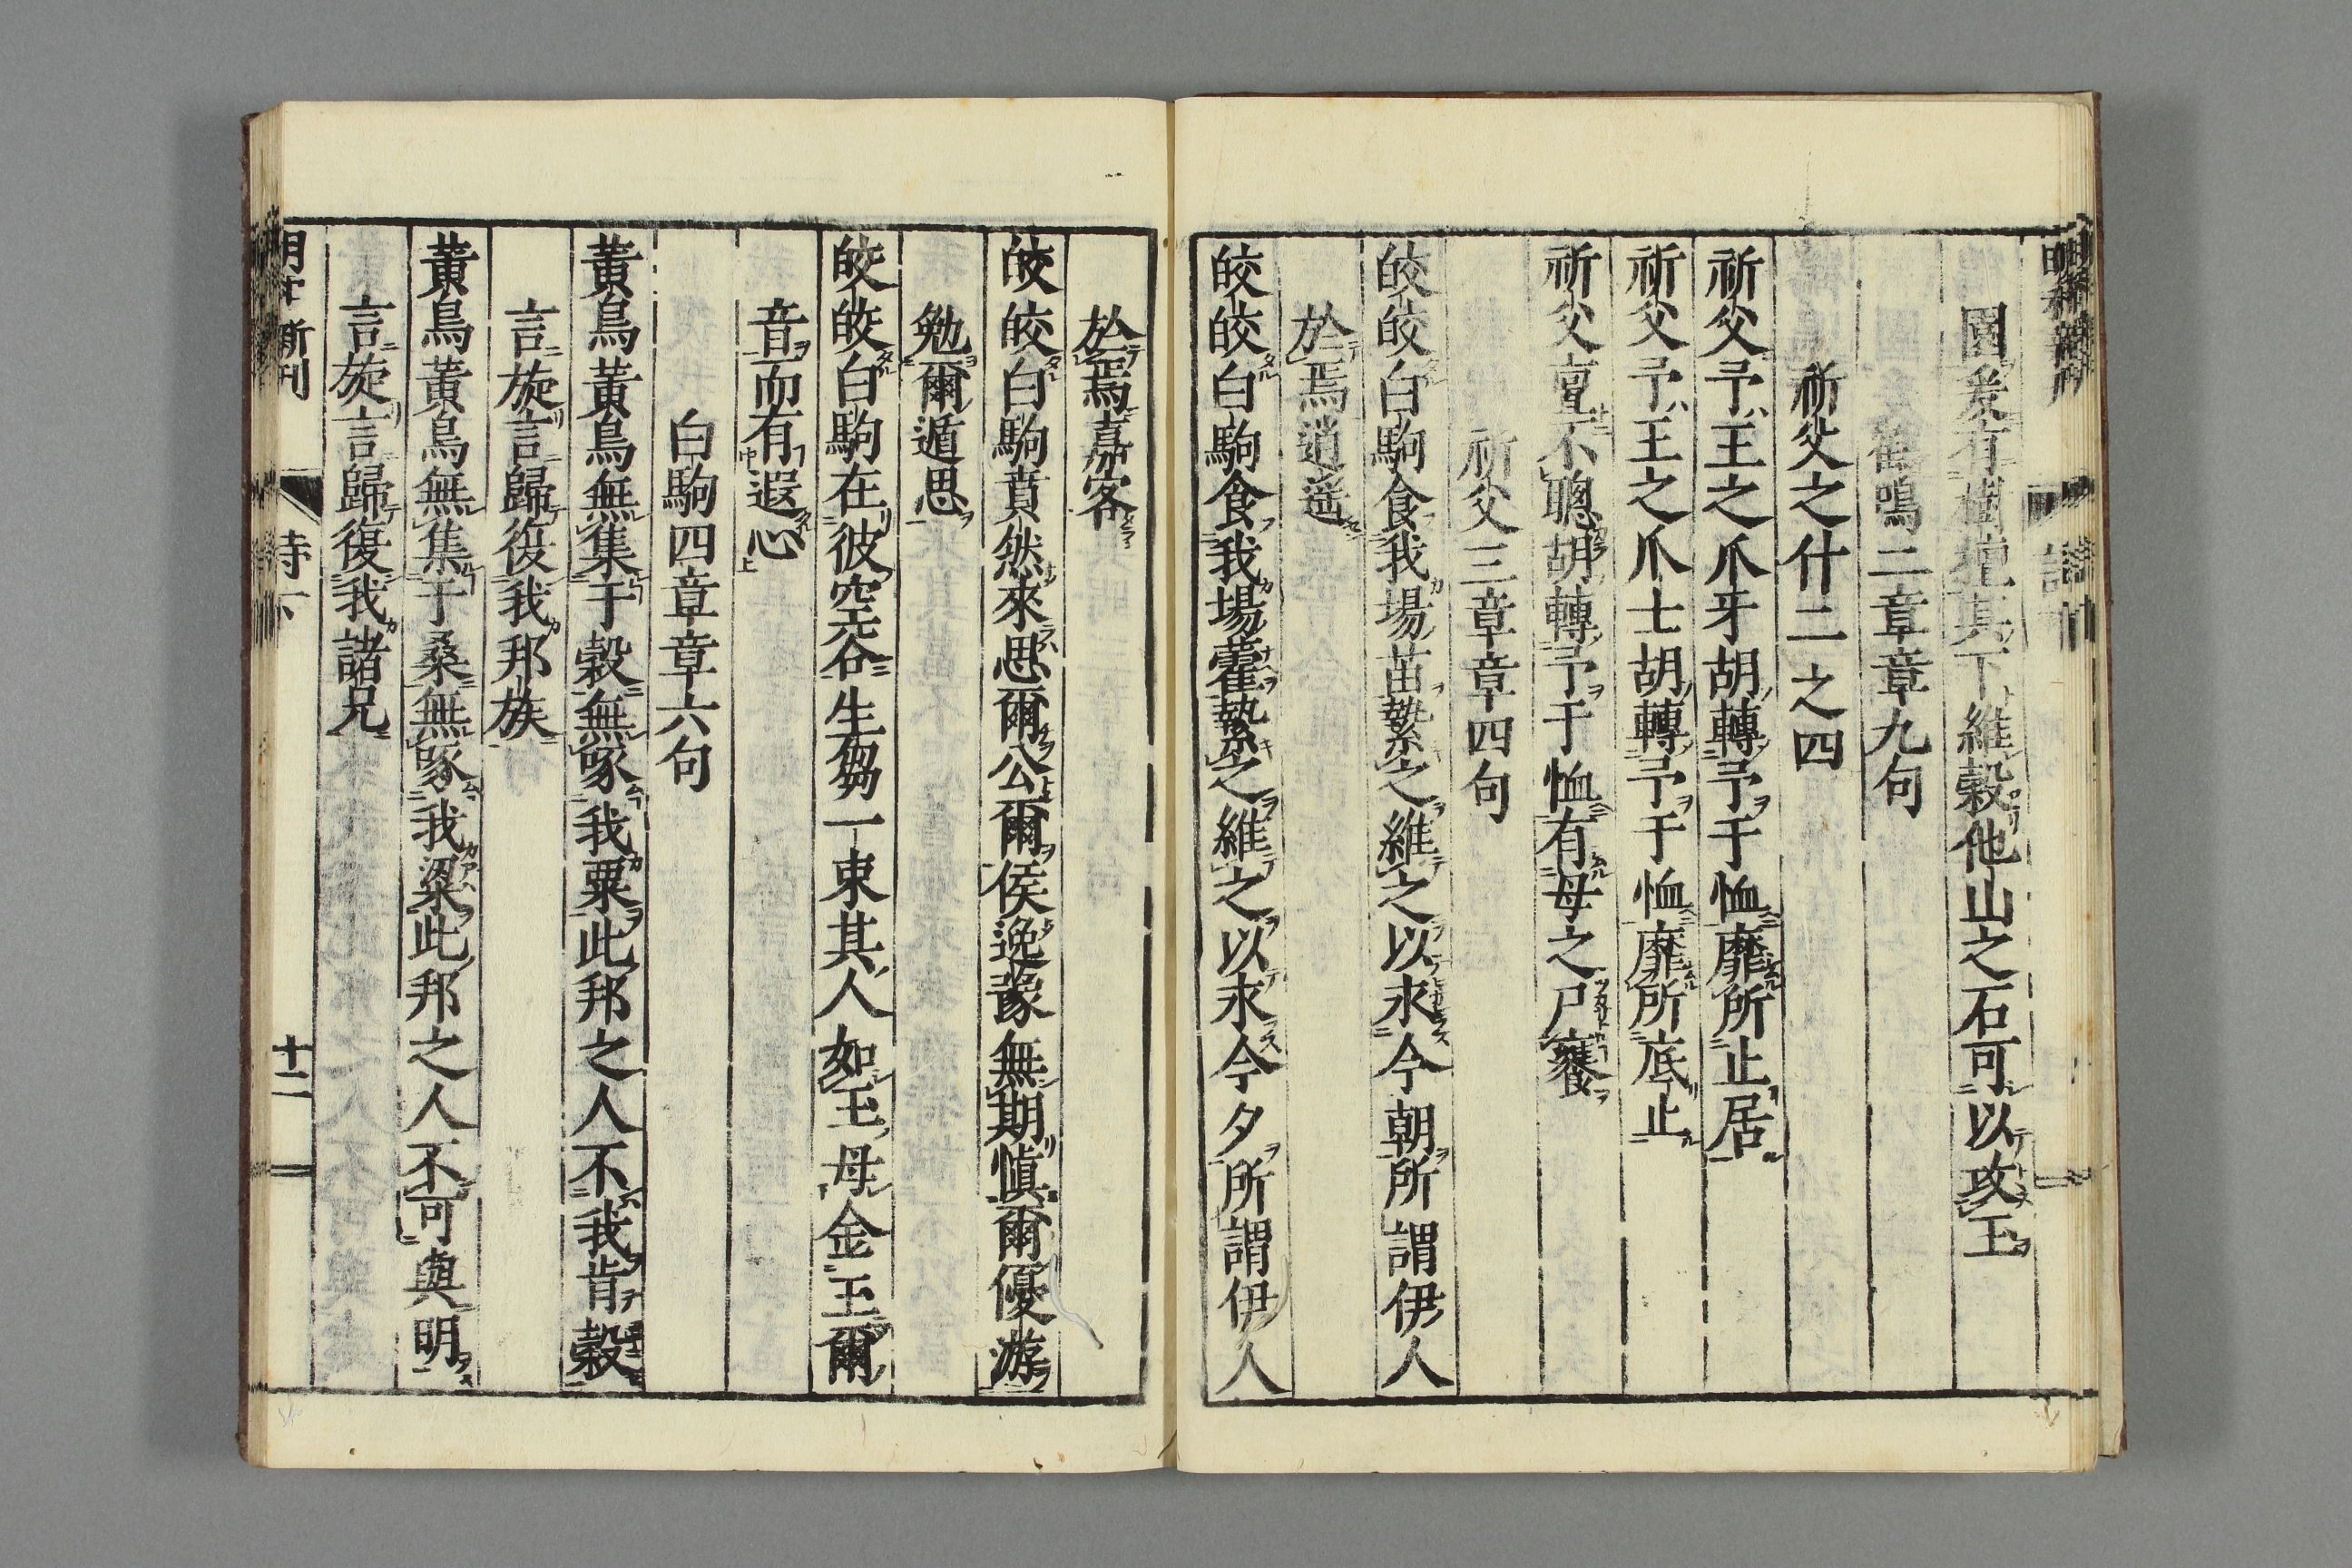 園爰有樹檀其下維穀他山之石可以攻玉
鶴鳴二章章九句
祈父之什二之四
祈父予王之爪牙胡轉予于恤靡所止居
祈父予王之爪士胡轉予于恤靡所底止
祈父亶不聰胡轉予于恤有母之尸饔
祈父三章章四句
皎皎白駒食我場苗縶之維之以永今朝所謂伊人
於焉逍遥
皎皎白駒食我場藿縶之維之以永今夕所謂伊人
於焉嘉客
皎皎白駒賁然來思爾公爾侯逸豫無期愼爾優游
勉爾遁思
皎皎白駒在彼空谷生芻一束其人如玉毋金玉爾
音而有遐心
白駒四章章六句
黃鳥黃鳥無集于穀無啄我粟此邦之人不我肯穀
言旋言歸復我邦族
黃鳥黃鳥無集于桑無啄我粱此邦之人不可與明
言旋言歸復我諸兄
十二